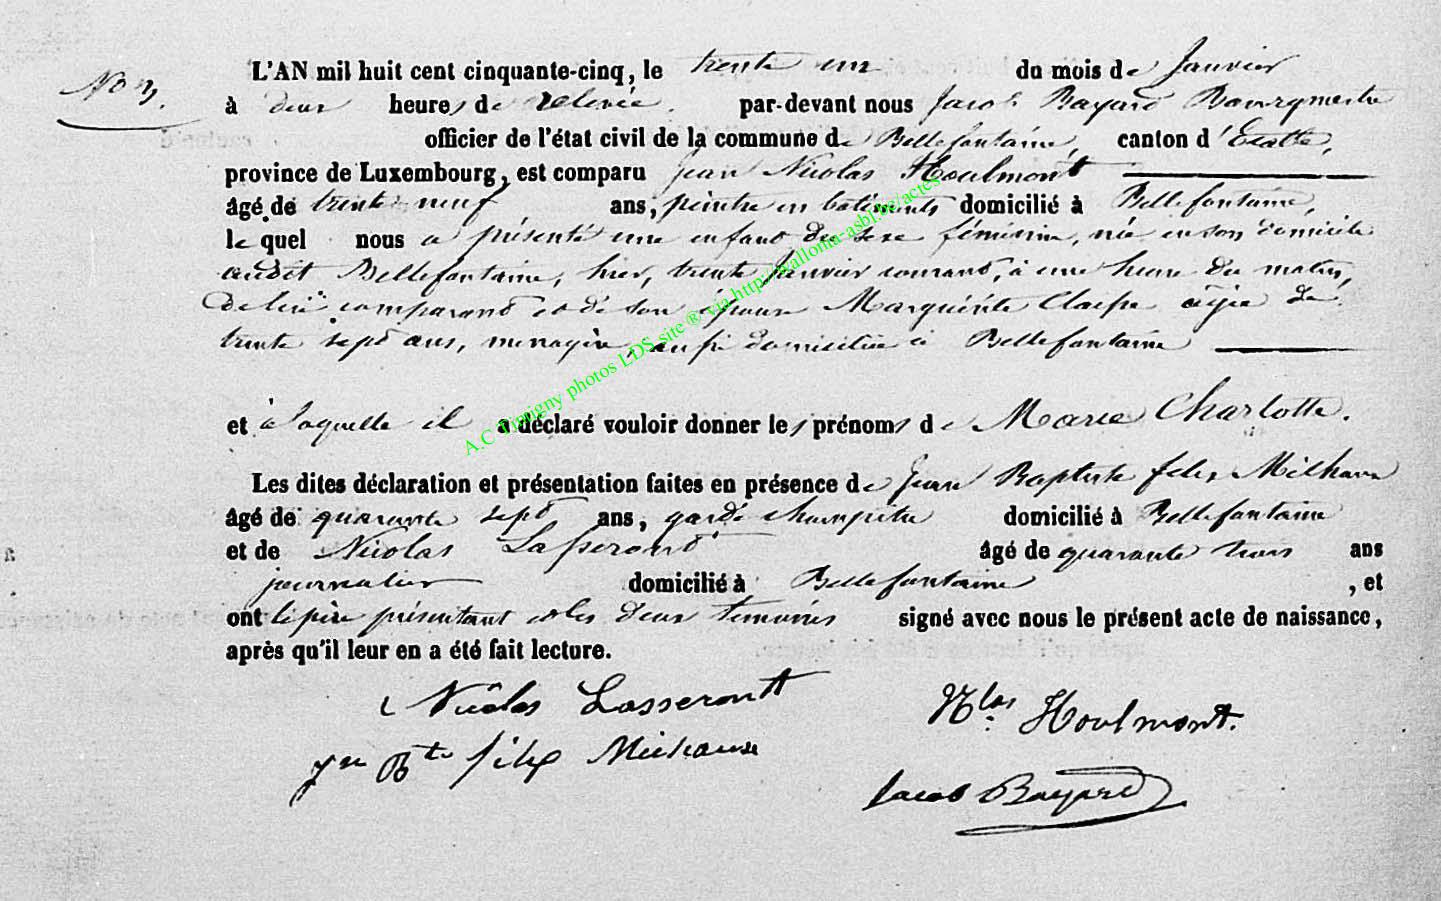 No 3.
L'AN mil huit cent cinquante-cinq, le trente un du mois de Janvier
à deux heures de relevée. par-devant nous Jacob Bayard Bourgmestre
officier de l'état civil de la commune de Bellefontaine, canton d'Etalle,
province de Luxembourg, est comparu Jean Nicolas Houlmont
âgé de trente neuf ans, peintre en bâtiments domicilié à Bellefontaine,
lequel nous a présenté une enfant du sexe féminin, née en son domicile
audit Bellefontaine, hier, trente Janvier courant, à une heure du matin,
de lui comparant et de son épouse Marguérite Claisse âgée de
trente sept ans, menagère, aussi domiciliée à Bellefontaine
et à laquelle il a déclaré vouloir donner les prénoms de Marie Charlotte.
Les dites déclaration et présentation faites en présence de Jean Baptiste felix
âgé de quarante sept ans, garde champêtre domicilié à Bellefontaine
et de Nicolas Lasseront âgé de quarante trois ans
journalier domicilié à Bellefontaine, et
ont le père présentant et les deux temoins signé avec nous le présent acte de naissance,
après qu'il leur en a été fait lecture.
Nicolas Lasseront
Nlas Houlmont.
Jn Bte félix
Jacob Bayard
A.C Tintigny photos LDS site ® via http://wallonia-asbl.be/actes